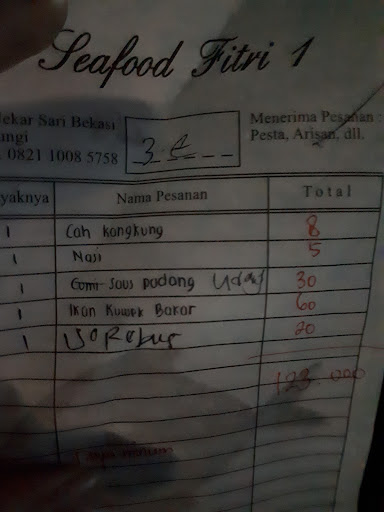 Seafood Fitri 1
ekar Sari Bekasi
ungi
0821 1008 5758
Menerima Pesanan :
Pesta, Arisan, dll.
yaknya Nama Pesanan Total
1 Cah kangkung 8
1 Nasi 5
1 Cumi-saus padang 30
1 Ikan Kuwek Bakar 60
1 20
123.000